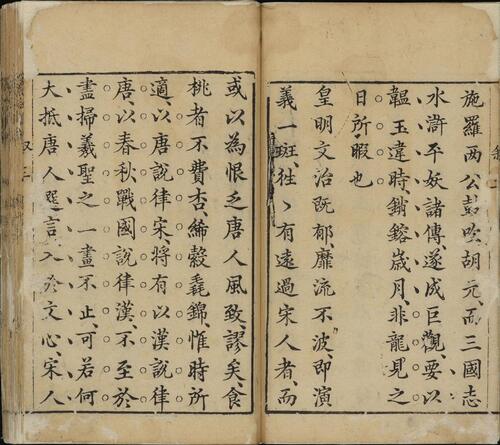 施羅两公鼓吹胡元、而三國志
水滸平妖諸傳、遂成巨觀、要以
韞玉違時、銷鎔歳月、非龍見之
日所暇也
皇明文治既郁、靡流不波、即演
義一斑、徃〻有遠過宋人者、而
或以為恨乏唐人風致、謬矣、食
桃者不費杏、絺縠毳錦、惟時所
適、以唐說律宋、將有以漢說律
唐、以春秋戰國說律漢、不至於
盡掃羲聖之一畫不止、可若何、
大抵唐人選言、入於文心、宋人